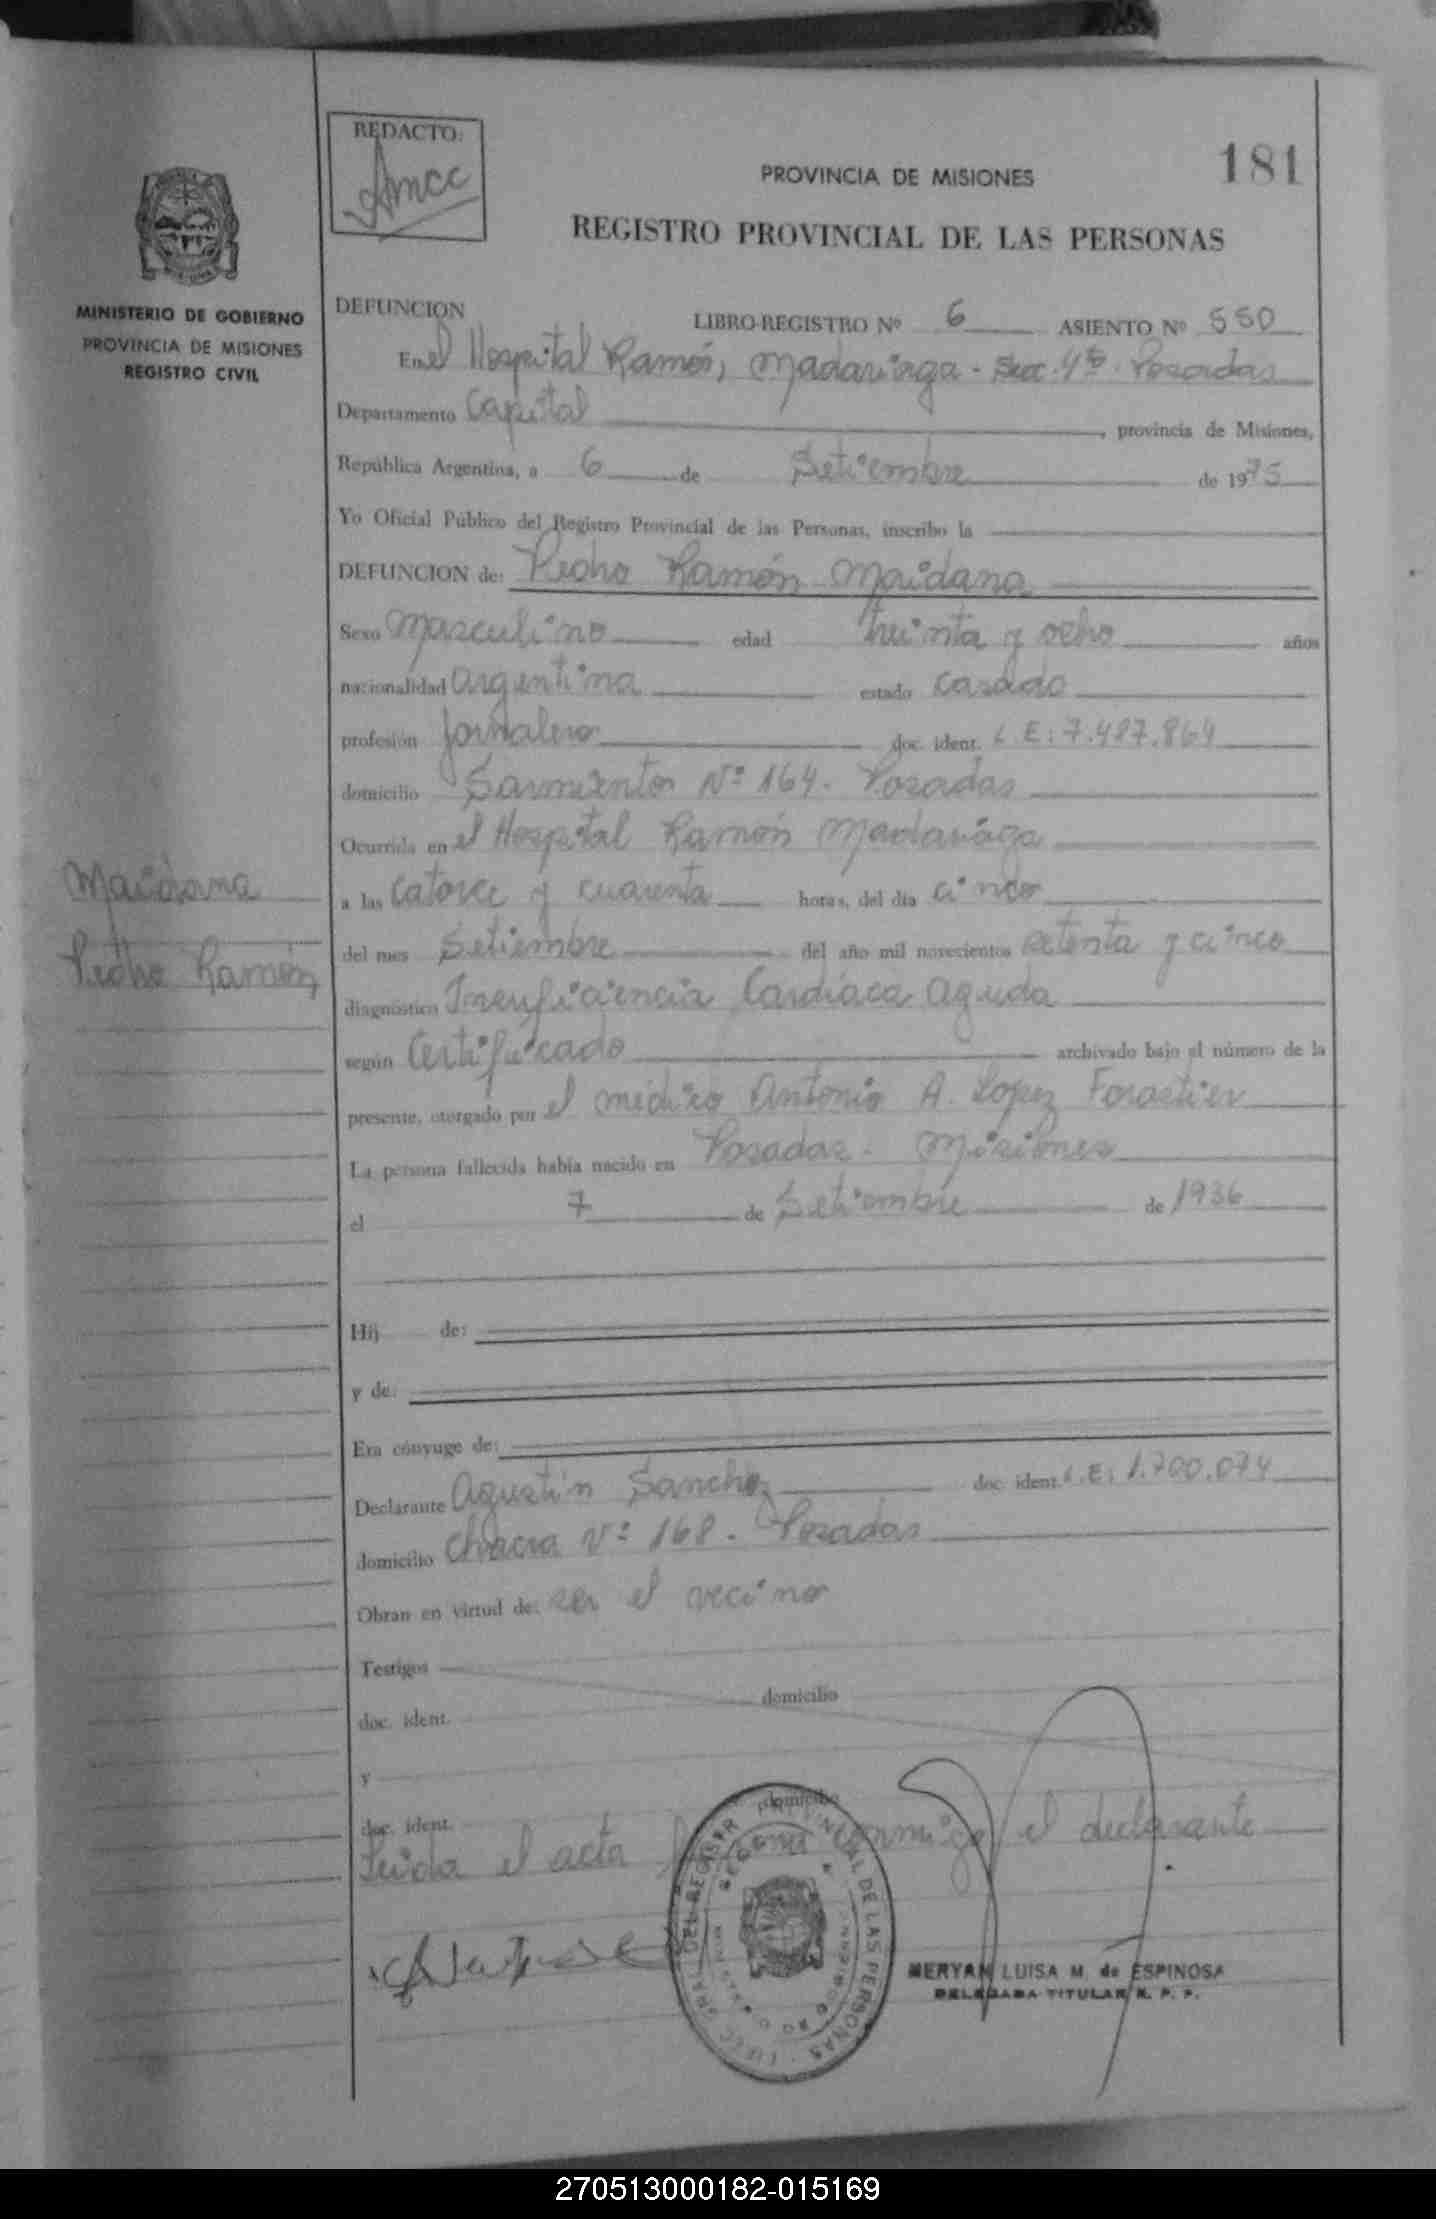 REDACTO:
Amcc
181
PROVINCIA DE MISIONES
REGISTRO PROVINCIAL DE LAS PERSONAS
MINISTERIO DE GOBIERNO
PROVINCIA DE MISIONES
REGISTRO CIVIL
DEFUNCION
LIBRO-REGISTRO Nº 6 ASIENTO Nº 550
En el Hospital Ramón, Madariaga - Secc. 4ta. Posadas
Departamento Capital, provincia de Misiones,
República Argentina, a 6 de Setiembre de 1975
Yo Oficial Público del Registro Provincial de las Personas, inscribo la
DEFUNCION de: Pedro Ramón Maidana
Sexo Masculino edad treinta y ocho años
nacionalidad Argentina estado Casado
profesión Jornalero doc. ident. L E: 7.487.864
domicilio Sarmiento Nº 164. Posadas
Ocurrida en el Hospital Ramón Madariaga
Maidana
a las catorce y cuarenta horas, del día cinco
Pedro Ramón
del mes Setiembre del año mil novecientos setenta y cinco
diagnóstico Insuficiencia Cardíaca Aguda
según Certificado archivado bajo el número de la
presente, otorgado por el médico Antonio A. Lopez Forastier
La persona fallecida había nacido en Posadas - Misiones
el 7 de Setiembre de 1936
Hij de:
y de:
Era cónyuge de:
Declarante Agustín Sanchez doc. ident. L.E: 1.700.074
domicilio Chacra Nº 168. Posadas
Obran en virtud de: ser el vecino
Testigos
domicilio
doc. ident.
y
domicilio
doc. ident.
Leida el acta firma conmigo el declarante
DEL REGISTRO PROVINCIAL DE LAS PERSONAS
MERYAN LUISA M. de ESPINOSA
DELEGADA TITULAR R. P. P.
270513000182-015169